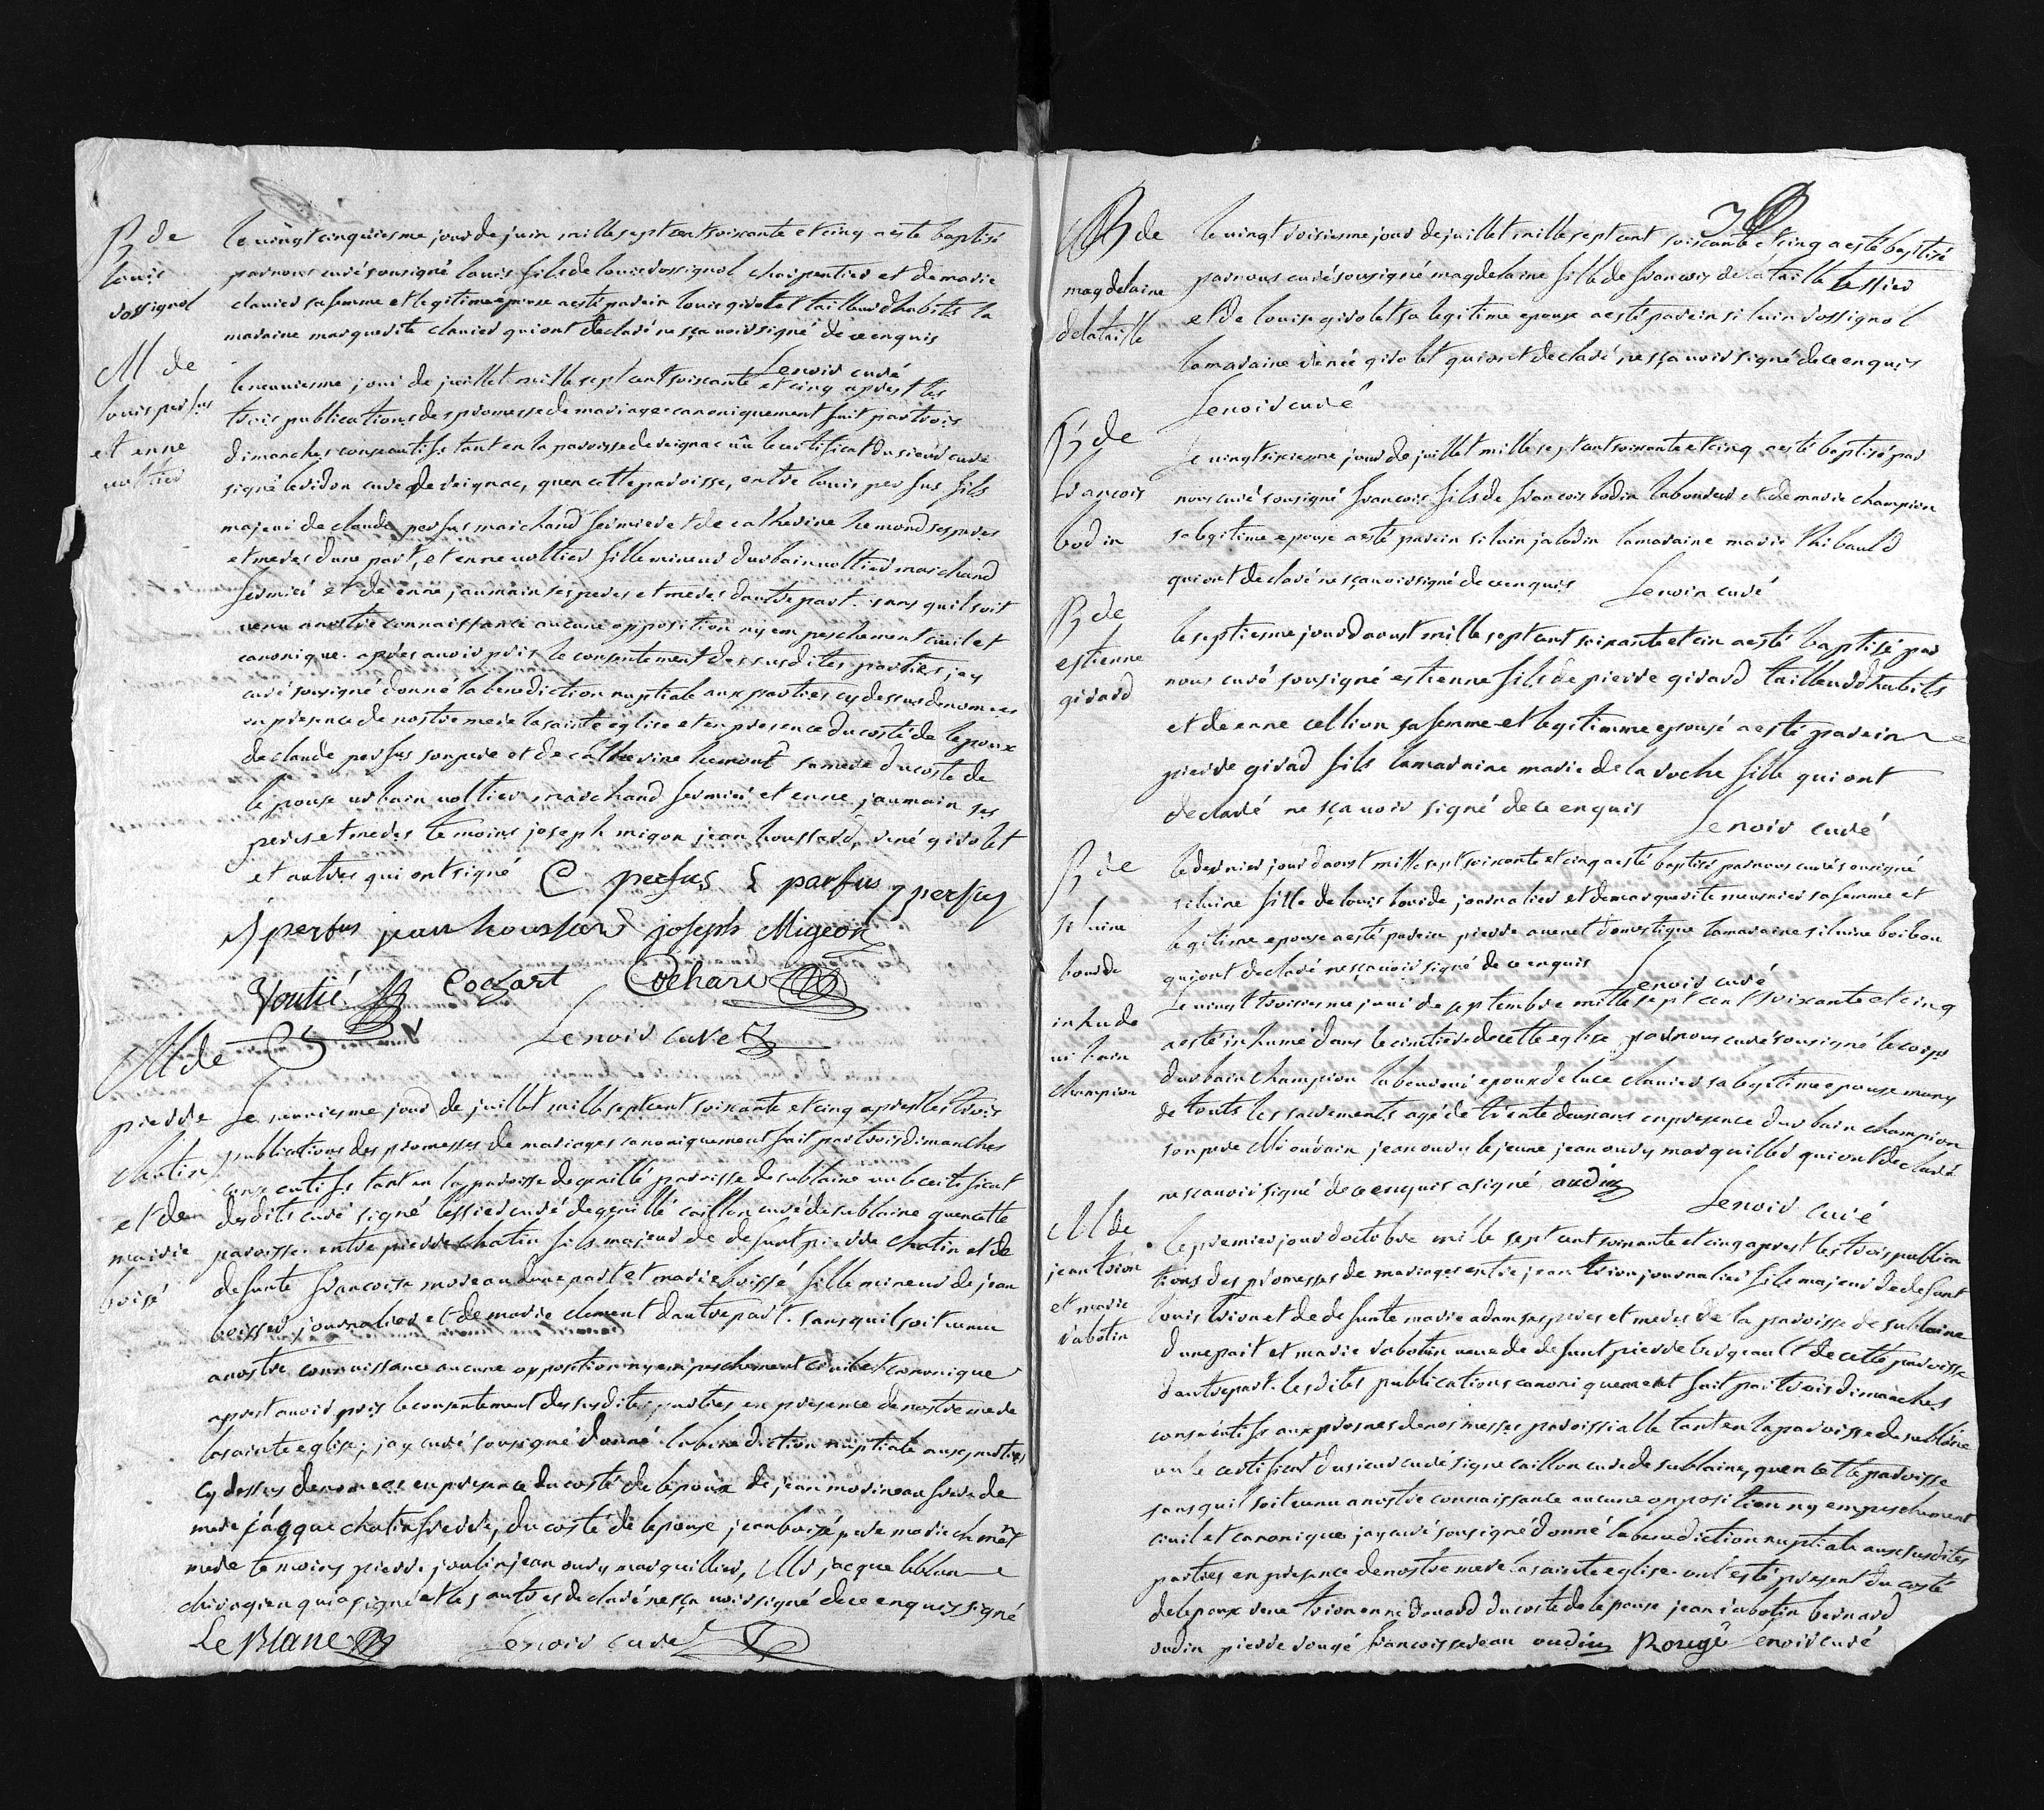 B de
louis
rossignol
le uingt cinquiesme jour de juin mille sept cent soixante et cinq a esté baptisé
par nous curé sousigné louis fils de louis rossignol charpentier et de marie
clanier sa femme et legitime epouse a esté parein louis girolet tailleur dhabits la
maraine marguerite clanier qui ont declaré ne sça uoir signé de ce enquis
Lenoir curé
M de
louis perfus
et enne
uoltier
le neuuiesme jour de juillet mille sept cent soixante et cinq aprest les
trois publications des promesse de mariage canoniquement fait par trois
dimanches conseautifs tant en la paroisse de reignac uû le certificat du sieur curé
signé leridon curé de reignac, quen cette paroisse, entre louis perfus fils
majeur de claude perfus marchand fermier et de catherine hemond ses peres
et meres dune part, et enne uoltier fille mineur durbain uoltier marchand
fermier et de enne jaumain ses peres et meres dautre part. sans quil soit
uenu a nostre connaissance aucune opposition ny empeschement ciuil et
canonique. apres auoir pris le consentement des susdites parties jay
curé sousigné donné la benediction nuptiale aux parties cy dessus denomees
en presence de nostre mere la sainte eglise et en presence du costé de lepoux
de claude perfus son pere et de catherine hemont sa mere du coste de
lepouse urbain uoltier marchand fermier et enne jaumain ses
peres et meres temoins joseph migon jean houssard, rené girolet
et autres qui ont signé C perfus L parfus perfus
perfus jean houssard joseph Migeon
Voutié Cochart Cochart
Lenoir curé
M de
pierre
chatin
et de
marie
boisé
Le neuuiesme jour de juillet mille sept cent soixante et cinq aprest les trois
publications des promesses de mariages canoniquement fait par trois dimanches
consecutifs tant en la paroisse de genillé paroisse de sublaine uu le certificat
desdits curé signé tessier curé de genillé caillon curé de sublaine quen cette
paroisse. entre pierre chatin fils majeur de defunt pierre chatin et de
defunte francoise moreau dune part et marie boissé fille mineur de jean
boisser journalier et de marie clement dautre part. sans quil soit uenu
a nostre connaissance aucune opposition ny empeschement ciuil et canonique
aprest auoir pris le consentement des susdites parties en presence de nostre mere
la sainte eglise; jay curé sousigné donné la benediction nuptiale aux parties
cy dessus denomees en presence du costé de lepoux de jean morineau frere de
mere jacque chatin frerre, du costé de lepouse jean boisé pere marie clemet
mere temoins pierre joubin jean oury marguillier, Mr jacque leblanc
chirugien qui a signé et les autres declaré ne sça uoir signé de ce enquis signé
Le Blanc Lenoir curé
B de
magdelaine
delataille
le uingt troisiesme jour de juillet mille sept cent soixante et cinq a esté baptisé
par nous curé sousigné magdelaine fille de francois delataille tessier
et de louise girolet sa legitime epouse a esté parein siluin rossignol
la maraine renée girolet qui ont declaré ne sça uoir signé de ce enquis
Lenoir curé
B de
francois
bodin
Le uingt sixiesme jour de juillet mille sept cent soixante et cinq a esté baptisé par
nous curé sousigné francois fils de francois bodin laboureur et de marie champion
sa legitime epouse a esté parein siluin jabodin la maraine marie thibauld
qui ont declaré ne sça uoir signé de ce enquis Lenoir curé
B de
estienne
girard
le septiesme jour daoust mille sept cent soixante et cin a esté baptisé par
nous curé sousigné estienne fils de pierre girard tailleur dhabits
et de enne cellion sa femme et legitimme epousé a esté parein
pierre girad fils la maraine marie de la roche fille qui ont
declaré ne sça uoir signé de ce enquis Lenoir curé
B de
siluine
bourde
le dernier jour daoust mille sept soixante et cinq a esté baptisé par nous curé sousigné
siluine fille de louis bourde journalier et de marguerite meusnier sa femme et
legitime epouse a esté parein pierre auenet domestique la maraine siluine boibon
qui ont declaré ne sça uoir signé de ce enquis Lenoir curé
inhu de
urbain
champion
Le uingt troisiesme jour de septembre mille sept cent soixante et cinq
a esté inhumé dans le cimtiere de cette eglise par nous curé sousigné le corps
durbain champion laboureur epoux de luce clanier sa legitime epouse muny
de touts les sacrements agé de trente deux ans en presence durbain champion
son pere Mr oudin jean oury le jeune jean oury marguillier qui ont declaré
ne sça uoir signé de ce enquis a signé oudin Lenoir curé
M de
jean trion
et marie
rabotin
le premier jour doctobre mille sept cent soixante et cinq aprest les trois publica
tions des promesses de mariages entre jean trion journalier fils majeur de defunt
louis trion et de defunte marie adam ses peres et meres de la paroisse de sublaine
dune part et marie rabotin ueuue de defunt pierre bergeault de cette paroisse
dautre part. lesdites publications canoniquement fait par trois dimanches
consecutifs aux prosnes de nos messes paroissialle tant en la paroisse de sublaine
uu le certificat du sieur curé signé caillon curé de sublaine, quen cette paroisse
sans quil soit uenu a nostre connaissance aucune opposition ny empeschement
ciuil et canonique jay curé sousigné donné la benediction nuptiale aux susdites
parties en presence de nostre mere la sainte eglise. ont esté present du costé
de lepoux rene trion enne douard du coste de lepouse jean rabotin bernard
oudin pierre rougé francois oudin Rougé Lenoir curé